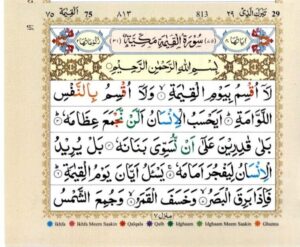 القيمة ٧٥ 75 ٨١٣ 813 ٢٩ تبرك الذي 29
سُوْرَةُ الْقِيٰمَةِ مَكِّيَّةٌ
بِسْمِ اللّٰهِ الرَّحْمٰنِ الرَّحِيْمِ
لَاۤ اُقْسِمُ بِيَوْمِ الْقِيٰمَةِ ۙ وَلَاۤ اُقْسِمُ بِالنَّفْسِ
اللَّوَّامَةِ ؕ اَيَحْسَبُ الْاِنْسَانُ اَلَّنْ نَّجْمَعَ عِظَامَهٗ ؕ
بَلٰى قٰدِرِيْنَ عَلٰۤى اَنْ نُّسَوِّىَ بَنَانَهٗ بَلْ يُرِيْدُ
الْاِنْسَانُ لِيَفْجُرَ اَمَامَهٗ ۚ يَسْـَٔلُ اَيَّانَ يَوْمُ الْقِيٰمَةِ ؕ
فَاِذَا بَرِقَ الْبَصَرُ ۙ وَخَسَفَ الْقَمَرُ ۙ وَجُمِعَ الشَّمْسُ
منزل ٧
Ikhfa Ikhfa Meem Saakin Qalqala Qalb Idghaam Idghaam Meem Saakin Ghunna